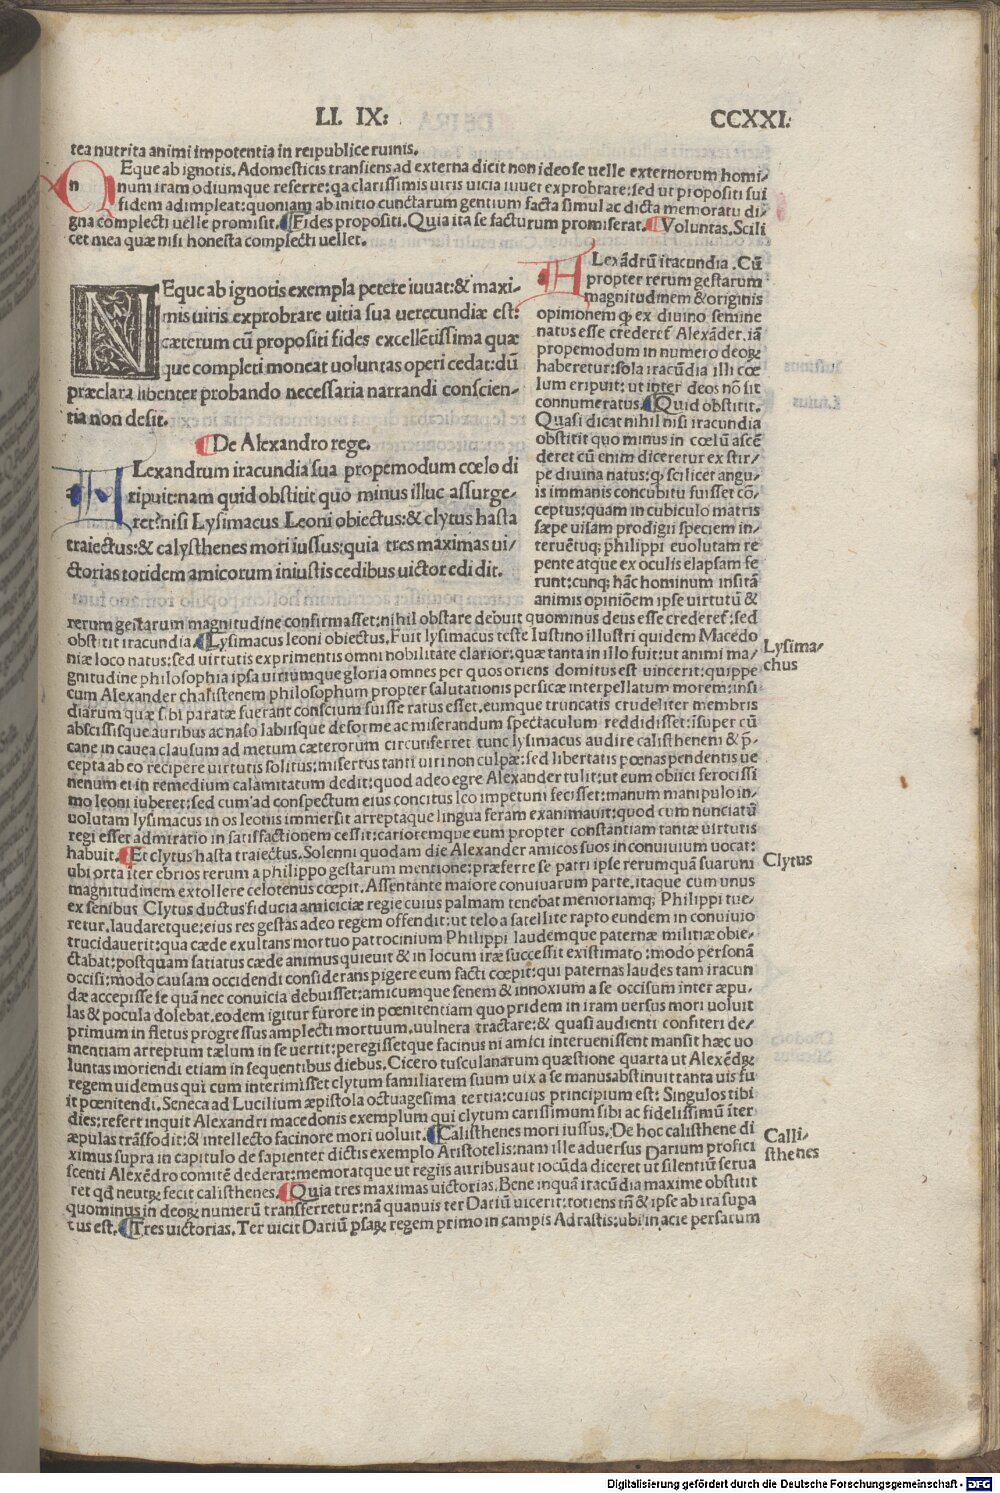 LI. IX:
CCXXI.
tea nutrita animi impotentia in reipublice ruinis.
Eque ab ignotis. A domesticis transiens ad externa dicit non ideo se uelle externorum homi-
n
num iram odiumque referre: qa clarissimis uiris uicia iuuet exprobrate: sed ut propositi sui
fidem adimpleat: quoniam ab initio cunctarum gentium facta simul ac dicta memoratu di-
gna complecti uelle promisit. Fides propositi. Quia ita se facturum promiserat. Voluntas. Scili
cet mea quæ nisi honesta complecti uellet.
NEque ab ignotis exempla petere iuuat: & maxi-
mis uiris exprobrare uitia sua uerecundiæ est:
cæterum cū propositi fides excellētissima quæ
que complecti moneat uoluntas operi cedat: dū
præclara libenter probando necessaria narrandi conscien-
tia non desit.
De Alexandro rege.
Lexandrum iracundia sua propemodum cœlo di
ripuit: nam quid obstitit quo minus illuc assurge-
ret? nisi Lysimacus Leoni obiectus: & clytus hasta
traiectus: & calysthenes mori iussus: quia tres maximas ui-
ctorias totidem amicorum iniustis cedibus uictor edidit.
a
Lexādrū iracundia. Cū
propter rerum gestarum
magnitudinem & originis
opinionem qƺ ex diuino semine
natus esse crederet Alexāder. iā
propemodum in numero deoꝝ
haberetur: sola iracūdia illi cœ
lum eripuit: ut inter deos nō sit
connumeratus. Quid obstitit.
Quasi dicat nihil nisi iracundia
obstitit quo minus in cœlū ascē
deret cū enim diceretur ex stir-
pe diuina natus: qƺ scilicet angu-
is immanis concubitu fuisset cō-
ceptus: quam in cubiculo matris
sæpe uisam prodigii speciem in-
teruētuqꝫ philippi euolutam re
pente atque ex oculis elapsam fe
runt: cunqꝫ hāc hominum insitā
animis opiniōem ipse uirtutū &
rerum gestarum magnitudine confirmasset: nihil obstare debuit quominus deus esse crederet: sed
obstitit iracundia. Lysimacus leoni obiectus. Fuit lysimacus teste Iustino illustri quidem Macedo
niæ loco natus: sed uirtutis exprimentis omni nobilitate clarior: quæ tanta in illo fuit: ut animi ma-
gnitudine philosophia ipsa uiriumque gloria omnes per quos oriens domitus est uincerit: quippe
cum Alexander chalistenem philosophum propter salutationis persicæ interpellatum morem: insi
diarum quæ sibi paratæ fuerant conscium fuisse ratus esset. eumque truncatis crudeliter membris
abscissisque auribus ac naso labiisque deforme ac miserandum spectaculum reddidisset: īsuper cū
cane in cauea clausum ad metum cæterorum circūferret tunc lysimacus audire calisthenem & p̄-
cepta ab eo recipere uirtutis solitus: misertus tanti uiri non culpæ: sed libertatis pœnas pendentis ue
nenum ei in remedium calamitatum dedit: quod adeo egre Alexander tulit: ut eum obiici ferocissi
mo leoni iuberet: sed cum ad conspectum eius concitus leo impetum fecisset: manum manipulo in-
uolutam lysimacus in os leonis immersit arreptaque lingua feram exanimauit: quod cum nunciatū
regi esset admiratio in satisfactionem cessit: cariotemque eum propter constantiam tantæ uirtutis
habuit. Et clytus hasta traiectus. Solenni quodam die Alexander amicos suos in conuiuium uocat:
ubi orta iter ebrios rerum a philippo gestarum mentione: præferre se patri ipse rerumquā suarum
magnitudinem extollere celotenus cœpit. Assentante maiore conuiuarum parte. itaque cum unus
ex senibus Clytus ductus fiducia amiciciæ regie cuius palmam tenebat memoriamqꝫ Philippi tue-
retur. laudaretque: eius res gestas adeo regem offendit: ut telo a satellite rapto eundem in conuiuio
trucidauerit: qua cæde exultans mortuo patrocinium Philippi laudemque paternæ militiæ obie-
ctabat: postquam satiatus cæde animus quieuit & in locum iræ successit existimato: modo personā
occisi: modo causam occidendi considerans pigere eum facti cœpit: qui paternas laudes tam iracun
dæ accepisse se quā nec conuicia debuisset: amicumque senem & innoxium a se occisum inter æpu-
las & pocula dolebat. eodem igitur furore in pœnitentiam quo pridem in iram uersus mori uoluit
primum in fletus progressus amplecti mortuum. uulnera tractare: & quasi audienti confiteri de-
mentiam arreptum tælum in se uertit: peregissetque facinus ni amici interuenissent mansit hæc uo
luntas moriendi etiam in sequentibus diebus. Cicero tusculanarum quæstione quarta ut Alexēdꝝ
regem uidemus qui cum interimisset clytum familiarem suum uix a se manus abstinuit tanta uis fu
it pœnitendi. Seneca ad Lucilium æpistola octuagesima tertia: cuius principium est: Singulos tibi
dies: refert inquit Alexandri macedonis exemplum qui clytum carissimum sibi ac fidelissimū īter
æpulas trāsfodit: & intellecto facinore mori uoluit. Calisthenes mori iussus. De hoc calisthene di
ximus supra in capitulo de sapienter dictis exemplo Aristotelis: nam ille aduersus Darium profici
scenti Alexēdro comitē dederat: memoratque ut regiis auribus aut iocūda diceret ut silentiū serua
ret qd neutꝝ fecit calisthenes. Quia tres maximas victorias. Bene inquā iracūdia maxime obstitit
quominus in deoꝝ numerū transferretur: nā quanuis ter Dariū uicerit: totiens tm̄ & ipse ab ira supa
tus est. Tres uictorias. Ter uicit Dariū psaꝝ regem primo in campis Adrastis: ubi in acie persarum
Lysima-
chus
Clytus
Calli-
sthenes
Digitalisierung gefördert durch die Deutsche Forschungsgemeinschaft - DFG